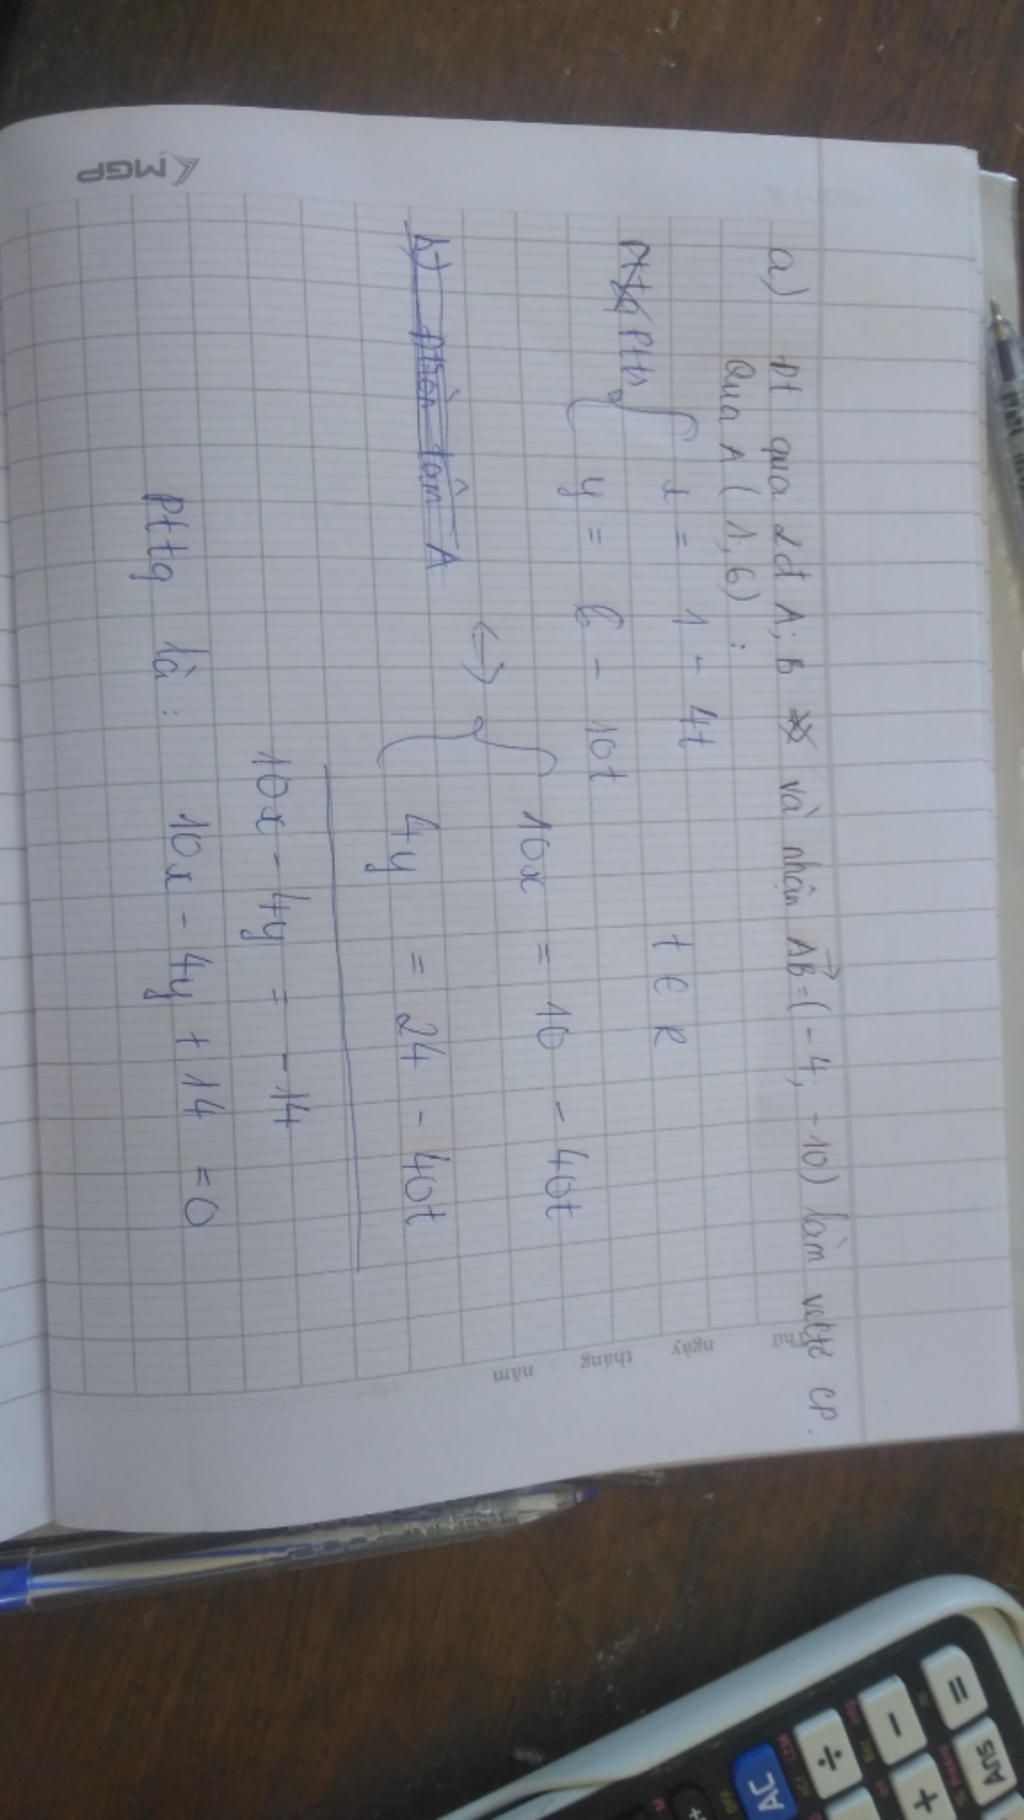 a) Đt qua 2đ A; B và nhận AB→=(-4; -10) làm vectơ CP.
Qua A (1; 6) :
Ptts { x = 1 - 4t
y = 6 - 10t t ∈ R
⟺ { 10x = 10 - 40t
4y = 24 - 40t
10x - 4y = -14
Pttq là : 10x - 4y + 14 = 0
MGP
Thứ ngày tháng năm
AC
Ans
=
-
+
÷
LCM